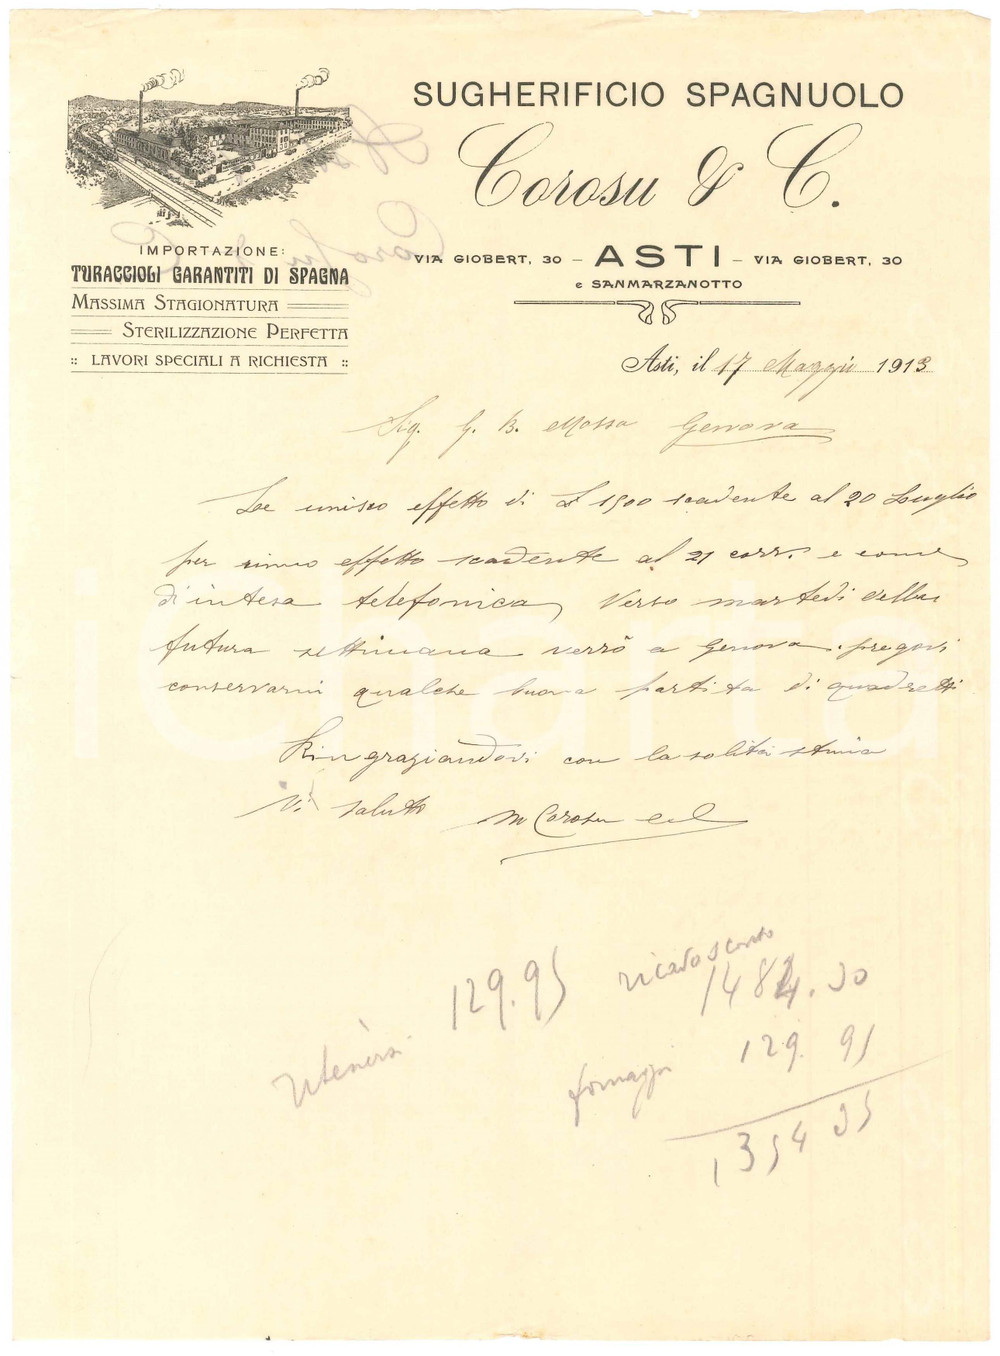 SUGHERIFICIO SPAGNUOLO
Corosu & C.
VIA GIOBERT, 30 – ASTI – VIA GIOBERT, 30
e SANMARZANOTTO
IMPORTAZIONE:
TURACCIOLI GARANTITI DI SPAGNA
MASSIMA STAGIONATURA
STERILIZZAZIONE PERFETTA
:: LAVORI SPECIALI A RICHIESTA ::
Asti, il 17 Maggio 1913
Sig. G. B. Mossa Genova
Le unisco effetto di £ 1500 scadente al 20 Luglio
per rinno effetto scadente al 21 corr. e come
d'intesa telefonica, Verso martedi della
futura settimana verrò a Genova. pregovi
conservarmi qualche buona partita di quadretti
Ringraziandovi con la solita stima
Vi saluto M Corosu
ricavo sconto
129.95 1484.30
ritenersi
formaggi 129.95
1354 35